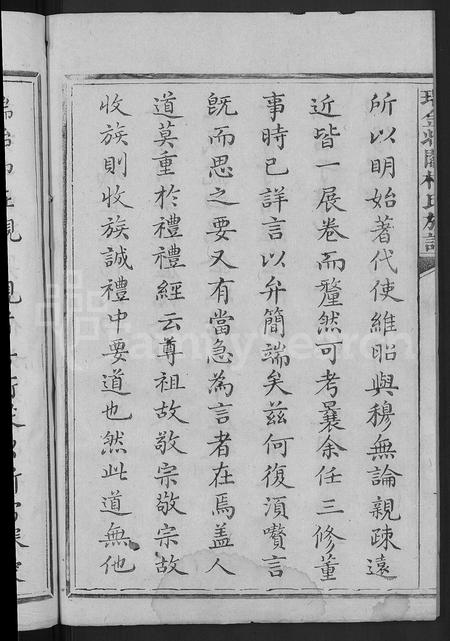 所以明始著代使維昭與穆無論親疎遠
近皆一展卷而釐然可考曩余任三修董
事時已詳言以弁簡端矣茲何復須贅言
既而思之要又有當急為言者在焉盖人
道莫重於禮禮經云尊祖故敬宗敬宗故
收族則收族誠禮中要道也然此道無他